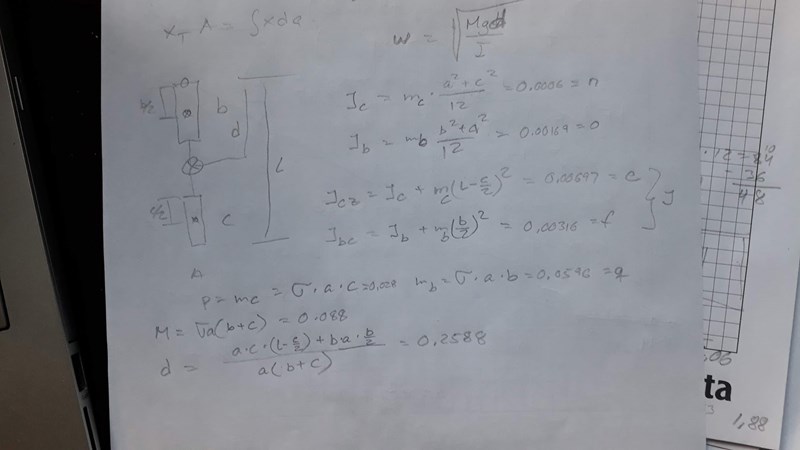 x_T A = ∫x da
ω = √(Mgd / I)
b/2
b
d
L
c/2
c
I_c = m_c · (a² + c²)/12 = 0.0006 = n
I_b = m_b (b² + a²)/12 = 0.00169 = 0
I_cz = I_c + m_c(L - c/2)² = 0.00697 = e } I
I_bc = I_b + m_b(b/2)² = 0,00316 = f
p = m_c = σ · a · c = 0,028 m_b = σ · a · b = 0,0596 = q
M = σa(b+c) = 0.088
d = (a·c·(L - c/2) + b·a·b/2) / (a(b+c)) = 0,2588
10
84
36
48
ta
1,88